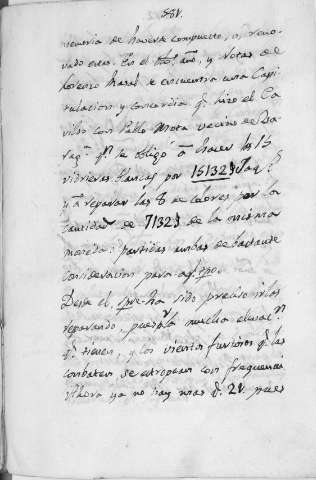 memoria de haverse compuesto, o, reno-
vado esas. En el año, y Notas de
Lorenzo se encuentra una Capi-
tulacion y concordia q.e hizo el Ca-
vildo con Pablo Mota vecino de Za-
rag.a q.n se obligò à hacer las 15
vidrieras blancas por 15132 Jaq.s
y à reparar las 8 de colores por la
cantidad de 7132 de la misma
moneda: partidas ambas de bastante
consideracion para aq.l tpo.
Desde el ha sido preciso irlas
reparando, pues p.r la mucha elevac.n
q.e tienen, y los vientos furiosos q.e las
combaten se estropean con frequencia
Ahora ya no hay mas q.e 21. pues